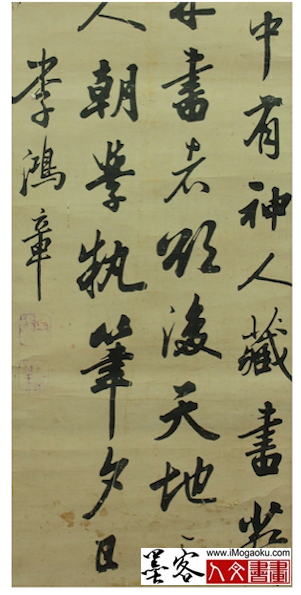 中有神人藏書
書者後天地
人朝學執筆夕日
李鴻章
墨客
www.iMogaoku.com
人文書畫